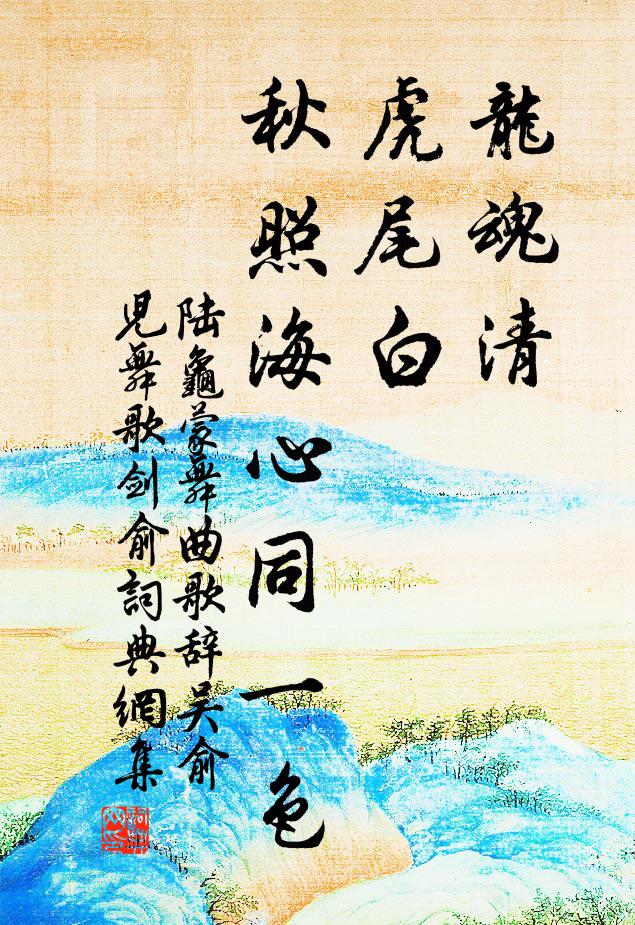 龍魂清
虎尾白
秋照海心同一色
陆龜蒙舞曲歌辞吴俞
児舞歌剑俞詞典網集